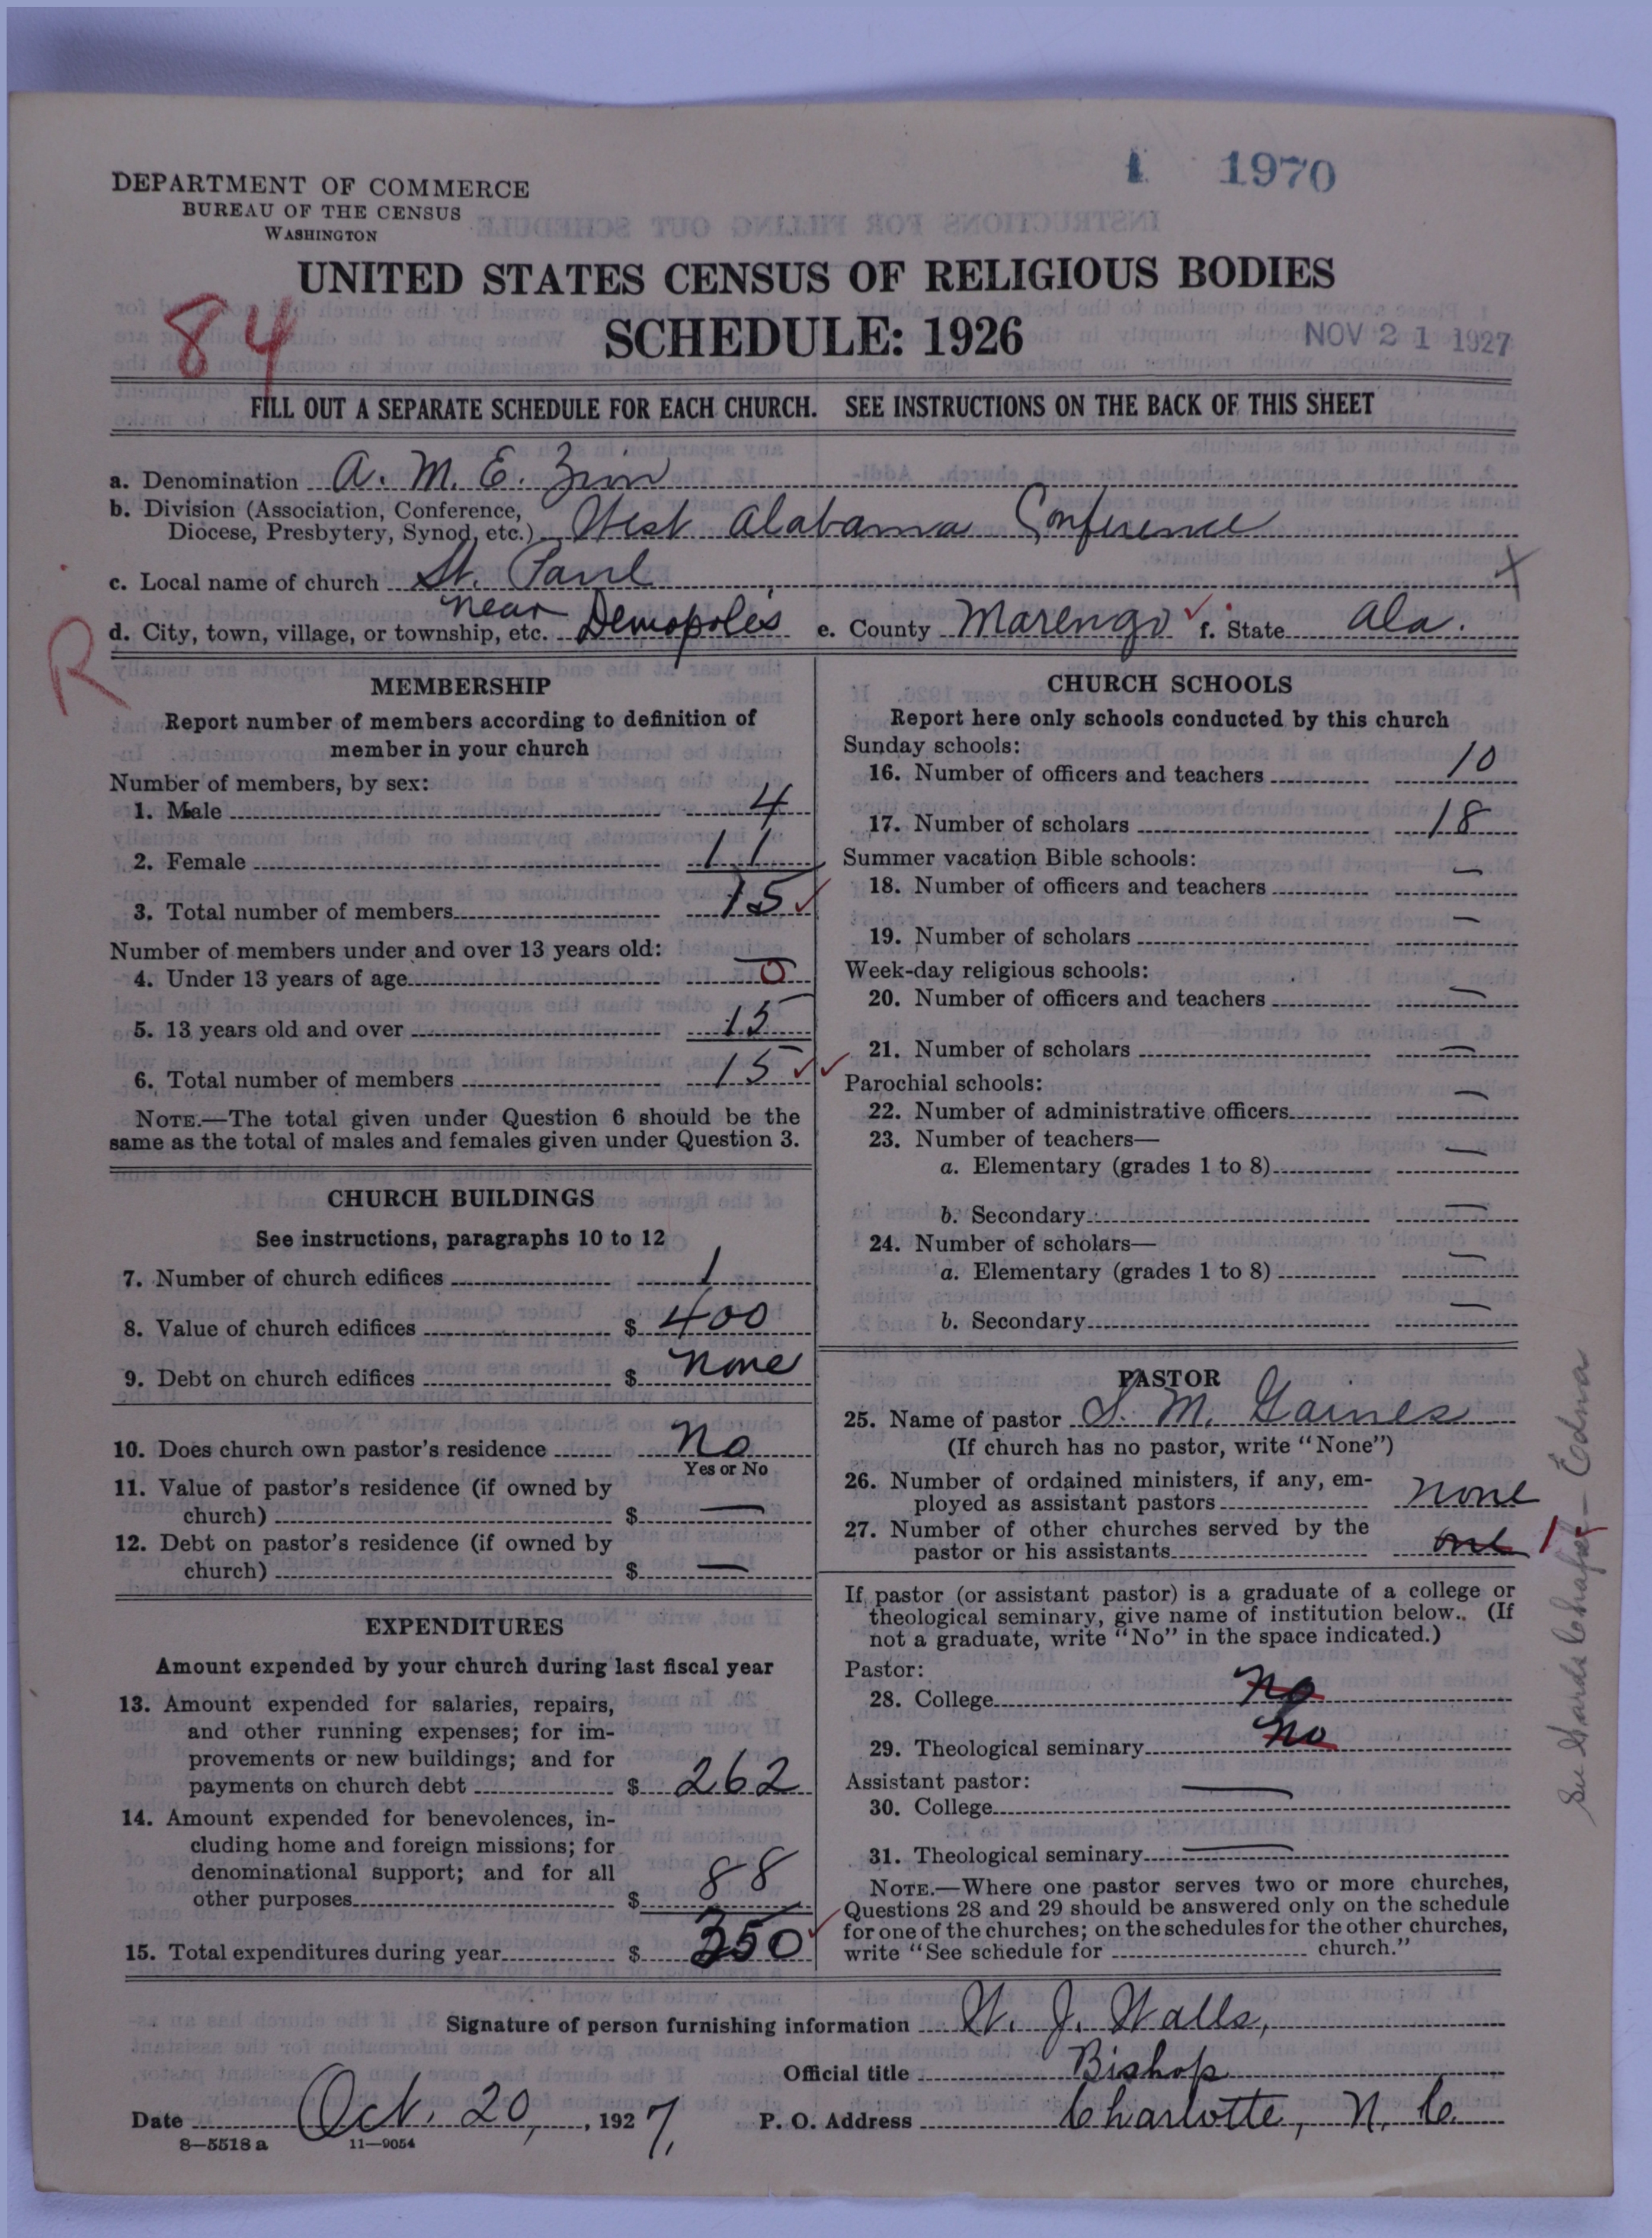 1 1970
DEPARTMENT OF COMMERCE
BUREAU OF THE CENSUS
WASHINGTON
UNITED STATES CENSUS OF RELIGIOUS BODIES
84
SCHEDULE: 1926
NOV 21 1927
FILL OUT A SEPARATE SCHEDULE FOR EACH CHURCH. SEE INSTRUCTIONS ON THE BACK OF THIS SHEET
a. Denomination A. M. E. Zion
b. Division (Association, Conference,
Diocese, Presbytery, Synod, etc.) West Alabama Conference
c. Local name of church St. Paul x
R
d. City, town, village, or township, etc. near Demopoles e. County Marengo f. State Ala.
MEMBERSHIP
Report number of members according to definition of
member in your church
Number of members, by sex:
1. Male 4
2. Female 11
3. Total number of members 15
Number of members under and over 13 years old:
4. Under 13 years of age 0
5. 13 years old and over 15
6. Total number of members 15
NOTE.—The total given under Question 6 should be the
same as the total of males and females given under Question 3.
CHURCH BUILDINGS
See instructions, paragraphs 10 to 12
7. Number of church edifices 1
8. Value of church edifices $ 400
9. Debt on church edifices $ none
10. Does church own pastor's residence No
Yes or No
11. Value of pastor's residence (if owned by
church) $ —
12. Debt on pastor's residence (if owned by
church) $ —
EXPENDITURES
Amount expended by your church during last fiscal year
13. Amount expended for salaries, repairs,
and other running expenses; for im-
provements or new buildings; and for
payments on church debt $ 262
14. Amount expended for benevolences, in-
cluding home and foreign missions; for
denominational support; and for all
other purposes $ 88
15. Total expenditures during year $ 350
CHURCH SCHOOLS
Report here only schools conducted by this church
Sunday schools:
16. Number of officers and teachers 10
17. Number of scholars 18
Summer vacation Bible schools:
18. Number of officers and teachers —
19. Number of scholars —
Week-day religious schools:
20. Number of officers and teachers —
21. Number of scholars —
Parochial schools:
22. Number of administrative officers —
23. Number of teachers—
a. Elementary (grades 1 to 8) —
b. Secondary —
24. Number of scholars—
a. Elementary (grades 1 to 8) —
b. Secondary —
PASTOR
25. Name of pastor S. M. Gaines
(If church has no pastor, write "None")
26. Number of ordained ministers, if any, em-
ployed as assistant pastors none
27. Number of other churches served by the
pastor or his assistants one 1
If pastor (or assistant pastor) is a graduate of a college or
theological seminary, give name of institution below. (If
not a graduate, write "No" in the space indicated.)
Pastor:
28. College no
29. Theological seminary no
Assistant pastor:
30. College —
31. Theological seminary —
NOTE.—Where one pastor serves two or more churches,
Questions 28 and 29 should be answered only on the schedule
for one of the churches; on the schedules for the other churches,
write "See schedule for church."
Edna
Signature of person furnishing information W. J. Walls,
Official title Bishop
Date Oct. 20, 1927, P. O. Address Charlotte, N. C.
8—5518 a 11—9054